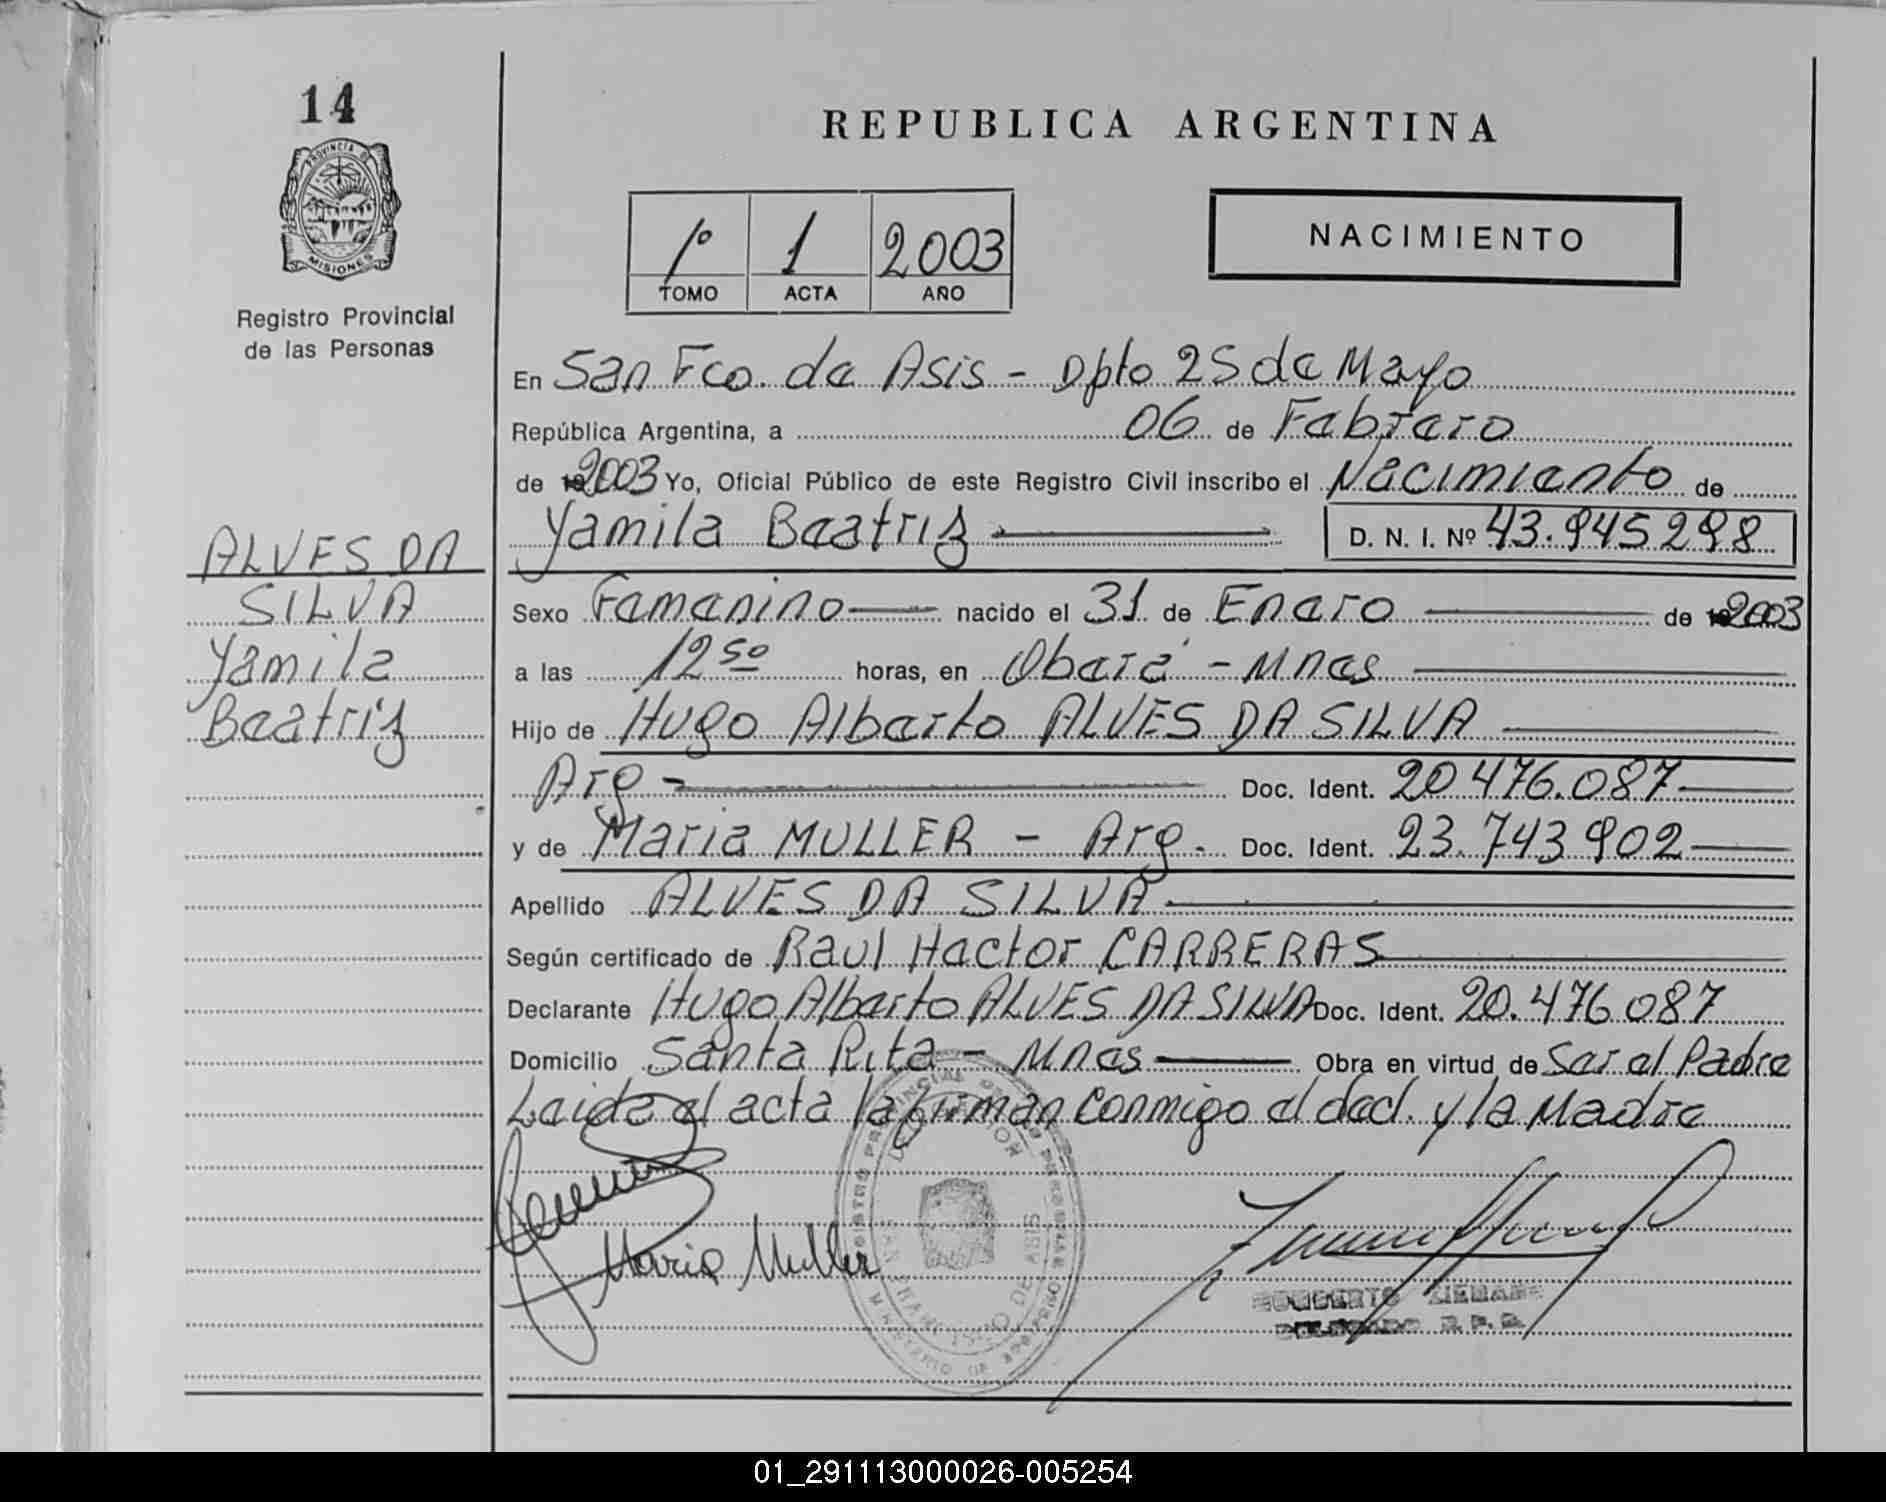 14
REPUBLICA ARGENTINA
PROVINCIA DE
MISIONES
1º 1 2003
TOMO ACTA AÑO
NACIMIENTO
Registro Provincial
de las Personas
En San Fco. de Asis - Dpto 25 de Mayo
República Argentina, a 06 de Febrero
de 2003 Yo, Oficial Público de este Registro Civil inscribo el Nacimiento de
Yamila Beatriz D. N. I. Nº 43.945298
ALVES DA
SILVA
Yamila
Beatriz
Sexo Femenino nacido el 31 de Enero de 2003
a las 12 50 horas, en Oberá - Mnes
Hijo de Hugo Alberto ALVES DA SILVA
Arg - Doc. Ident. 20.476.087
y de Maria MULLER - Arg. Doc. Ident. 23.743.902
Apellido ALVES DA SILVA
Según certificado de Raul Hector CARRERAS
Declarante Hugo Alberto ALVES DA SILVA Doc. Ident. 20.476.087
Domicilio Santa Rita - Mnes Obra en virtud de Ser el Padre
Leida el acta la firman conmigo el decl. y la Madre
Maria Muller
SAN FRANCISCO DE ASIS
01_291113000026-005254